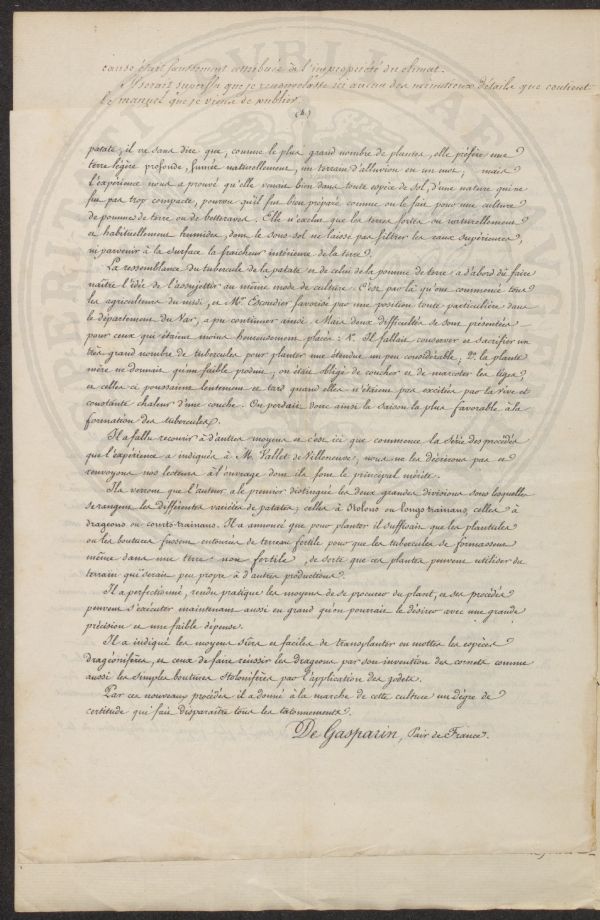 cause étant faussement attribuée à l'impropriété du climat.
Il serait superflu que je renouvelasse ici aucun des minutieux détails que contient
le manuel que je viens de publier
(4.)
patate, il va sans dire que, comme le plus grand nombre de plantes, elle préfère une
terre légère profonde, fumée naturellement, un terrain d'alluvion en un mot; mais
l'expérience nous a prouvé qu'elle venait bien dans toute espèce de sol, d'une nature qui ne
fut pas trop compacte, pourvu qu'il fut bien préparé comme on le fait pour une culture
de pommes de terre ou de betteraves. Elle n'exclut que les terres fortes ou naturellement
et habituellement humides, dont le sous-sol ne laisse pas filtrer les eaux supérieures,
ni parvenir à la surface la fraîcheur intérieure de la terre.
La ressemblance du tubercule de la patate et de celui de la pomme de terre a d'abord dû faire
naître l'idée de l'assujettir au même mode de culture. C'est par là qu'ont commencé tous
les agriculteurs du midi, et Mr. Escudier favorisé par une position toute particulière dans
le département du Var, a pu continuer ainsi. Mais deux difficultés se sont présentées
pour ceux qui étaient moins heureusement placés: 1°. Il fallait conserver et sacrifier un
très grand nombre de tubercules pour planter une étendue un peu considérable, 2°. la plante
mère ne donnait qu'un faible produit, on était obligé de coucher et de marcoter les tiges,
et celles ci poussaient lentement et tard quand elles n'étaient pas excitées par la vive et
constante chaleur d'une couche. On perdait donc ainsi la saison la plus favorable à la
formation des tubercules.
Il a fallu recourir à d'autres moyens et c'est ici que commence la série des procédés
que l'expérience a indiqués à M. Vallet de Villeneuve, nous ne les décrirons pas et
renvoyons nos lecteurs à l'ouvrage dont ils font le principal mérite.
Ils verront que l'auteur a le premier distingué les deux grandes divisions sous lesquelles
se rangent les différentes variétés de patates; celles à stolons ou longs trainans, celles à
drageons ou courts-trainans. Il a annoncé que pour planter il suffisait que les plantules
ou les boutures fussent entourées de terreau fertile pour que les tubercules se formassent
même dans une terre non fertile, de sorte que ces plantes peuvent utiliser du
terrain qui serait peu propre à d'autres productions.
Il a perfectionné, rendu pratique les moyens de se procurer du plant, et ses procédés
peuvent s'exécuter maintenant aussi en grand qu'on pourrait le désirer avec une grande
précision et une faible dépense.
Il a indiqué les moyens sûrs et faciles de transplanter en mottes les espèces
drageonifères, et ceux de faire réussir les drageons par son invention des cornets comme
aussi les simples boutures stolonifères par l'application des godets.
Par ces nouveaux procédés il a donné à la marche de cette culture un dégré de
certitude qui fait disparaître tous les tatonnements.
De Gasparin, Pair de France.